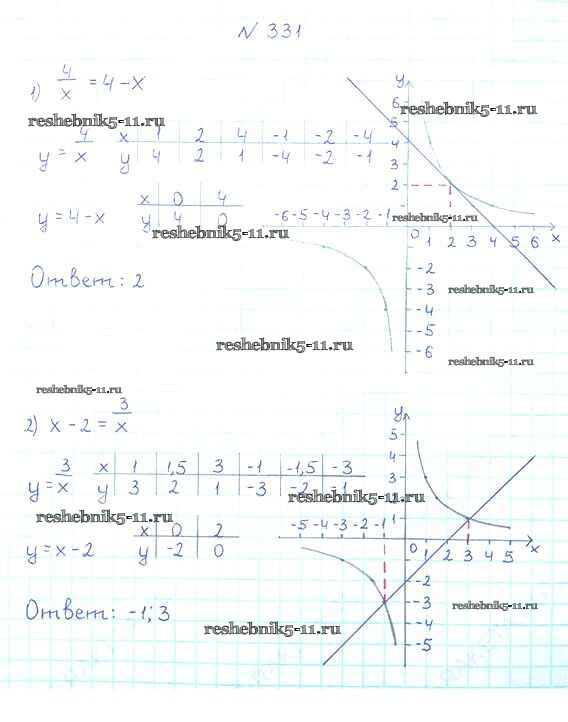 N 331
1) 4/x = 4-x
reshebnik5-11.ru
y = 4/x
x 1 2 4 -1 -2 -4
y 4 2 1 -4 -2 -1
y = 4-x
x 0 4
y 4 0
reshebnik5-11.ru
Ответ: 2
y
6
reshebnik5-11.ru
5
4
3
2
reshebnik5-11.ru
-6 -5 -4 -3 -2 -1 0 1 2 3 4 5 6 x
-2
-3 reshebnik5-11.ru
-4
-5
reshebnik5-11.ru
-6 reshebnik5-11.ru
reshebnik5-11.ru
2) x-2 = 3/x
y = 3/x
x 1 1,5 3 -1 -1,5 -3
y 3 2 1 -3 -2 -1
reshebnik5-11.ru
reshebnik5-11.ru
y = x-2
x 0 2
y -2 0
Ответ: -1; 3
reshebnik5-11.ru
y
5
4
3
1
-5 -4 -3 -2 -1 0 1 2 3 4 5 x
-2
-3 reshebnik5-11.ru
-4
-5